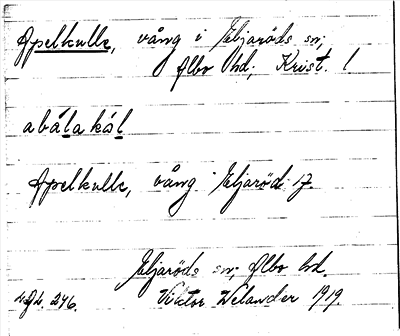 Apelkulle, vång i Eljaröds sn;
Albo hd; Krist. l
abálakál
Apelkulle, vång Eljaröd 17.
Eljaröds sn; Albo hd.
246. Viktor Welander 1919.